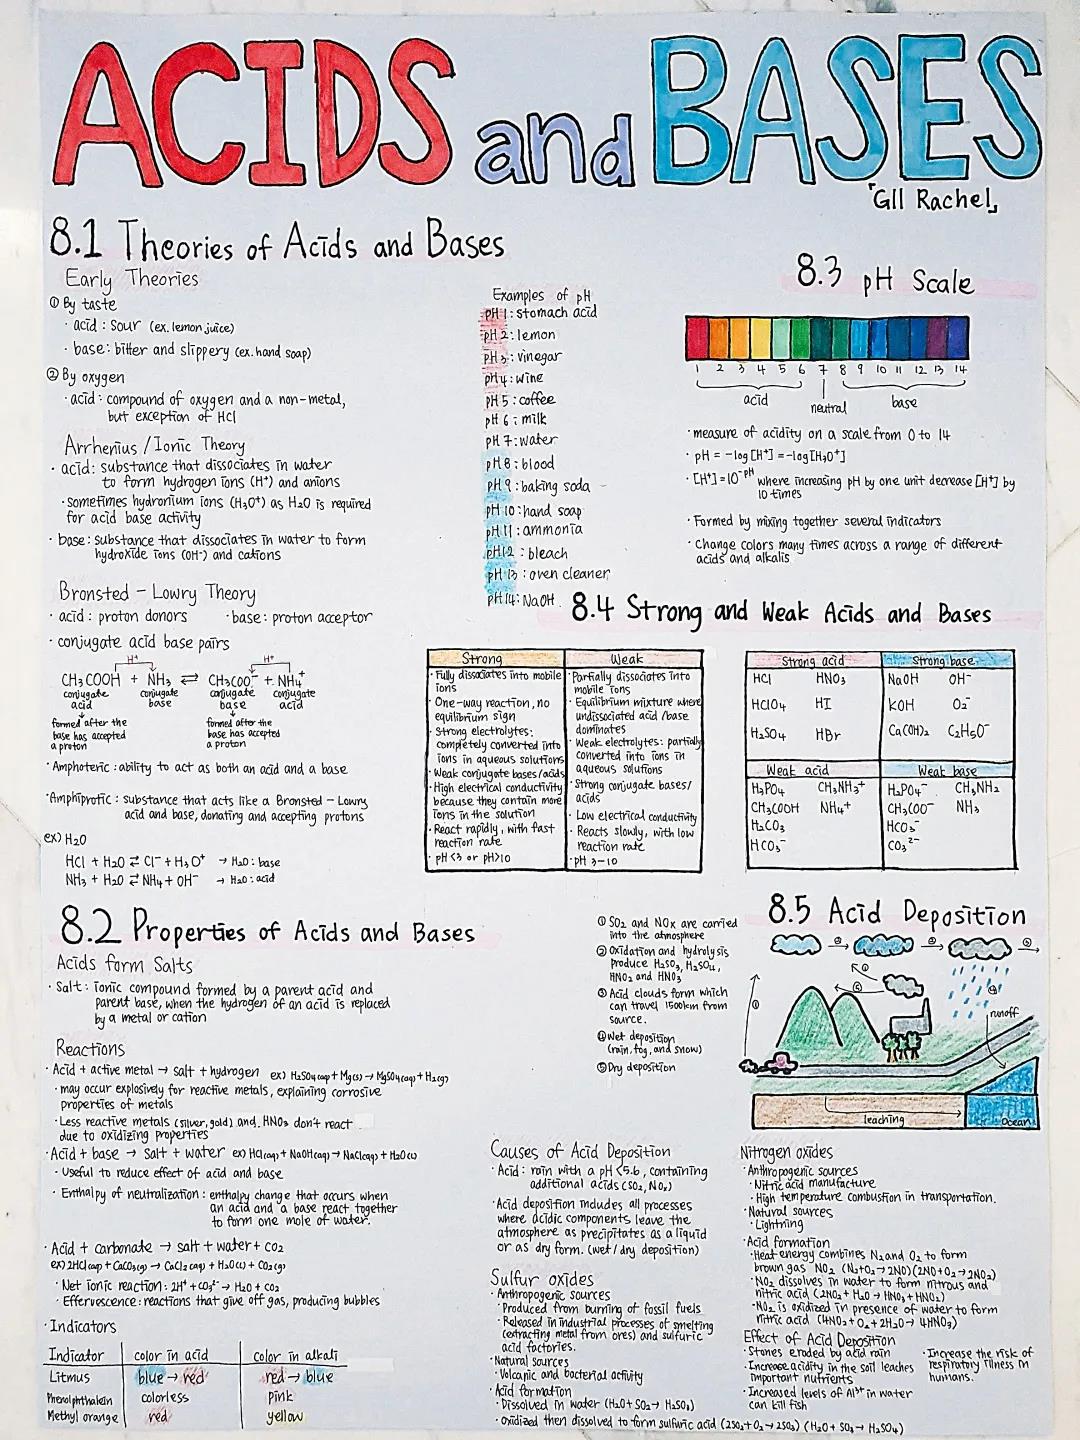 ACIDS and BASES
「G11 Rachel」
8.1 Theories of Acids and Bases
Early Theories
① By taste
· acid : sour (ex. lemon juice)
· base : bitter and slippery (ex. hand soap)
② By oxygen
· acid : compound of oxygen and a non-metal,
but exception of HCl
Arrhenius / Ionic Theory
· acid : substance that dissociates in water
to form hydrogen ions (H⁺) and anions
· sometimes hydronium ions (H₃O⁺) as H₂O is required
for acid base activity
· base : substance that dissociates in water to form
hydroxide ions (OH⁻) and cations
Bronsted - Lowry Theory
· acid : proton donors · base : proton acceptor
· conjugate acid base pairs
H⁺ H⁺
CH₃COOH + NH₃ ⇌ CH₃COO⁻ + NH₄⁺
conjugate acid conjugate base conjugate base conjugate acid
formed after the base has accepted a proton
formed after the base has accepted a proton
· Amphoteric : ability to act as both an acid and a base
· Amphiprotic : substance that acts like a Bronsted - Lowry
acid and base, donating and accepting protons
ex) H₂O
HCl + H₂O ⇌ Cl⁻ + H₃O⁺ → H₂O : base
NH₃ + H₂O ⇌ NH₄ + OH⁻ → H₂O : acid
Examples of pH
pH 1 : stomach acid
pH 2 : lemon
pH 3 : vinegar
pH 4 : wine
pH 5 : coffee
pH 6 : milk
pH 7 : water
pH 8 : blood
pH 9 : baking soda
pH 10 : hand soap
pH 11 : ammonia
pH 12 : bleach
pH 13 : oven cleaner
pH 14 : NaOH
8.3 pH Scale
1 2 3 4 5 6 7 8 9 10 11 12 13 14
acid neutral base
· measure of acidity on a scale from 0 to 14
· pH = -log[H⁺] = -log[H₃O⁺]
· [H⁺] = 10⁻ᵖᴴ where increasing pH by one unit decrease [H⁺] by
10 times
· Formed by mixing together several indicators
· Change colors many times across a range of different
acids and alkalis
8.4 Strong and Weak Acids and Bases
Strong
· Fully dissociates into mobile
ions
· One-way reaction, no
equilibrium sign
· Strong electrolytes:
completely converted into
ions in aqueous solutions
· Weak conjugate bases/acids
· High electrical conductivity
because they contain more
ions in the solution
· React rapidly, with fast
reaction rate
· pH <3 or pH>10
Weak
· Partially dissociates into
mobile ions
· Equilibrium mixture where
undissociated acid /base
dominates
· Weak electrolytes: partially
converted into ions in
aqueous solutions
· Strong conjugate bases/
acids
· Low electrical conductivity
· Reacts slowly, with low
reaction rate
· pH 3-10
Strong acid
HCl HNO₃
HClO₄ HI
H₂SO₄ HBr
Strong base
NaOH OH⁻
KOH O₂⁻
Ca(OH)₂ C₂H₅O⁻
Weak acid
H₃PO₄ CH₃NH₃⁺
CH₃COOH NH₄⁺
H₂CO₃
HCO₃⁻
Weak base
H₂PO₄⁻ CH₃NH₂
CH₃COO⁻ NH₃
HCO₃⁻
CO₃²⁻
8.2 Properties of Acids and Bases
Acids form Salts
· Salt : ionic compound formed by a parent acid and
parent base, when the hydrogen of an acid is replaced
by a metal or cation
Reactions
· Acid + active metal → salt + hydrogen ex) H₂SO₄(aq) + Mg(s) → MgSO₄(aq) + H₂(g)
· may occur explosively for reactive metals, explaining corrosive
properties of metals
· Less reactive metals (silver, gold) and HNO₃ don't react
due to oxidizing properties
· Acid + base → salt + water ex) HCl(aq) + NaOH(aq) → NaCl(aq) + H₂O(l)
· Useful to reduce effect of acid and base
· Enthalpy of neutralization : enthalpy change that occurs when
an acid and a base react together
to form one mole of water.
· Acid + carbonate → salt + water + CO₂
ex) 2HCl(aq) + CaCO₃(g) → CaCl₂(aq) + H₂O(l) + CO₂(g)
· Net ionic reaction : 2H⁺ + CO₃²⁻ → H₂O + CO₂
· Effervescence : reactions that give off gas, producing bubbles
· Indicators
Indicator color in acid color in alkali
Litmus blue → red red → blue
Phenolphthalein colorless pink
Methyl orange red yellow
8.5 Acid Deposition
① SO₂ and NOx are carried
into the atmosphere
② Oxidation and hydrolysis
produce H₂SO₃, H₂SO₄,
HNO₂ and HNO₃
③ Acid clouds form which
can travel 1500km from
source.
④ Wet deposition
(rain, fog, and snow)
⑤ Dry deposition
runoff
leaching
ocean
Causes of Acid Deposition
· Acid : rain with a pH <5.6, containing
additional acids (SO₂, NOx)
· Acid deposition includes all processes
where acidic components leave the
atmosphere as precipitates as a liquid
or as dry form. (wet / dry deposition)
Sulfur oxides
· Anthropogenic sources
· Produced from burning of fossil fuels
· Released in industrial processes of smelting
(extracting metal from ores) and sulfuric
acid factories.
· Natural sources
· Volcanic and bacterial activity
· Acid formation
· Dissolved in water (H₂O + SO₂ → H₂SO₃)
· Oxidized then dissolved to form sulfuric acid (2SO₂ + O₂ → 2SO₃) (H₂O + SO₃ → H₂SO₄)
Nitrogen oxides
· Anthropogenic sources
· Nitric acid manufacture
· High temperature combustion in transportation.
· Natural sources
· Lightning
· Acid formation
· Heat energy combines N₂ and O₂ to form
brown gas NO₂ (N₂+O₂→2NO)(2NO+O₂→2NO₂)
· NO₂ dissolves in water to form nitrous and
nitric acid (2NO₂ + H₂O → HNO₃ + HNO₂)
· NO₂ is oxidized in presence of water to form
nitric acid (4NO₂ + O₂ + 2H₂O → 4HNO₃)
Effect of Acid Deposition
· Stones eroded by acid rain
· Increase acidity in the soil leaches
important nutrients
· Increased levels of Al³⁺ in water
can kill fish
· Increase the risk of
respiratory illness in
humans.